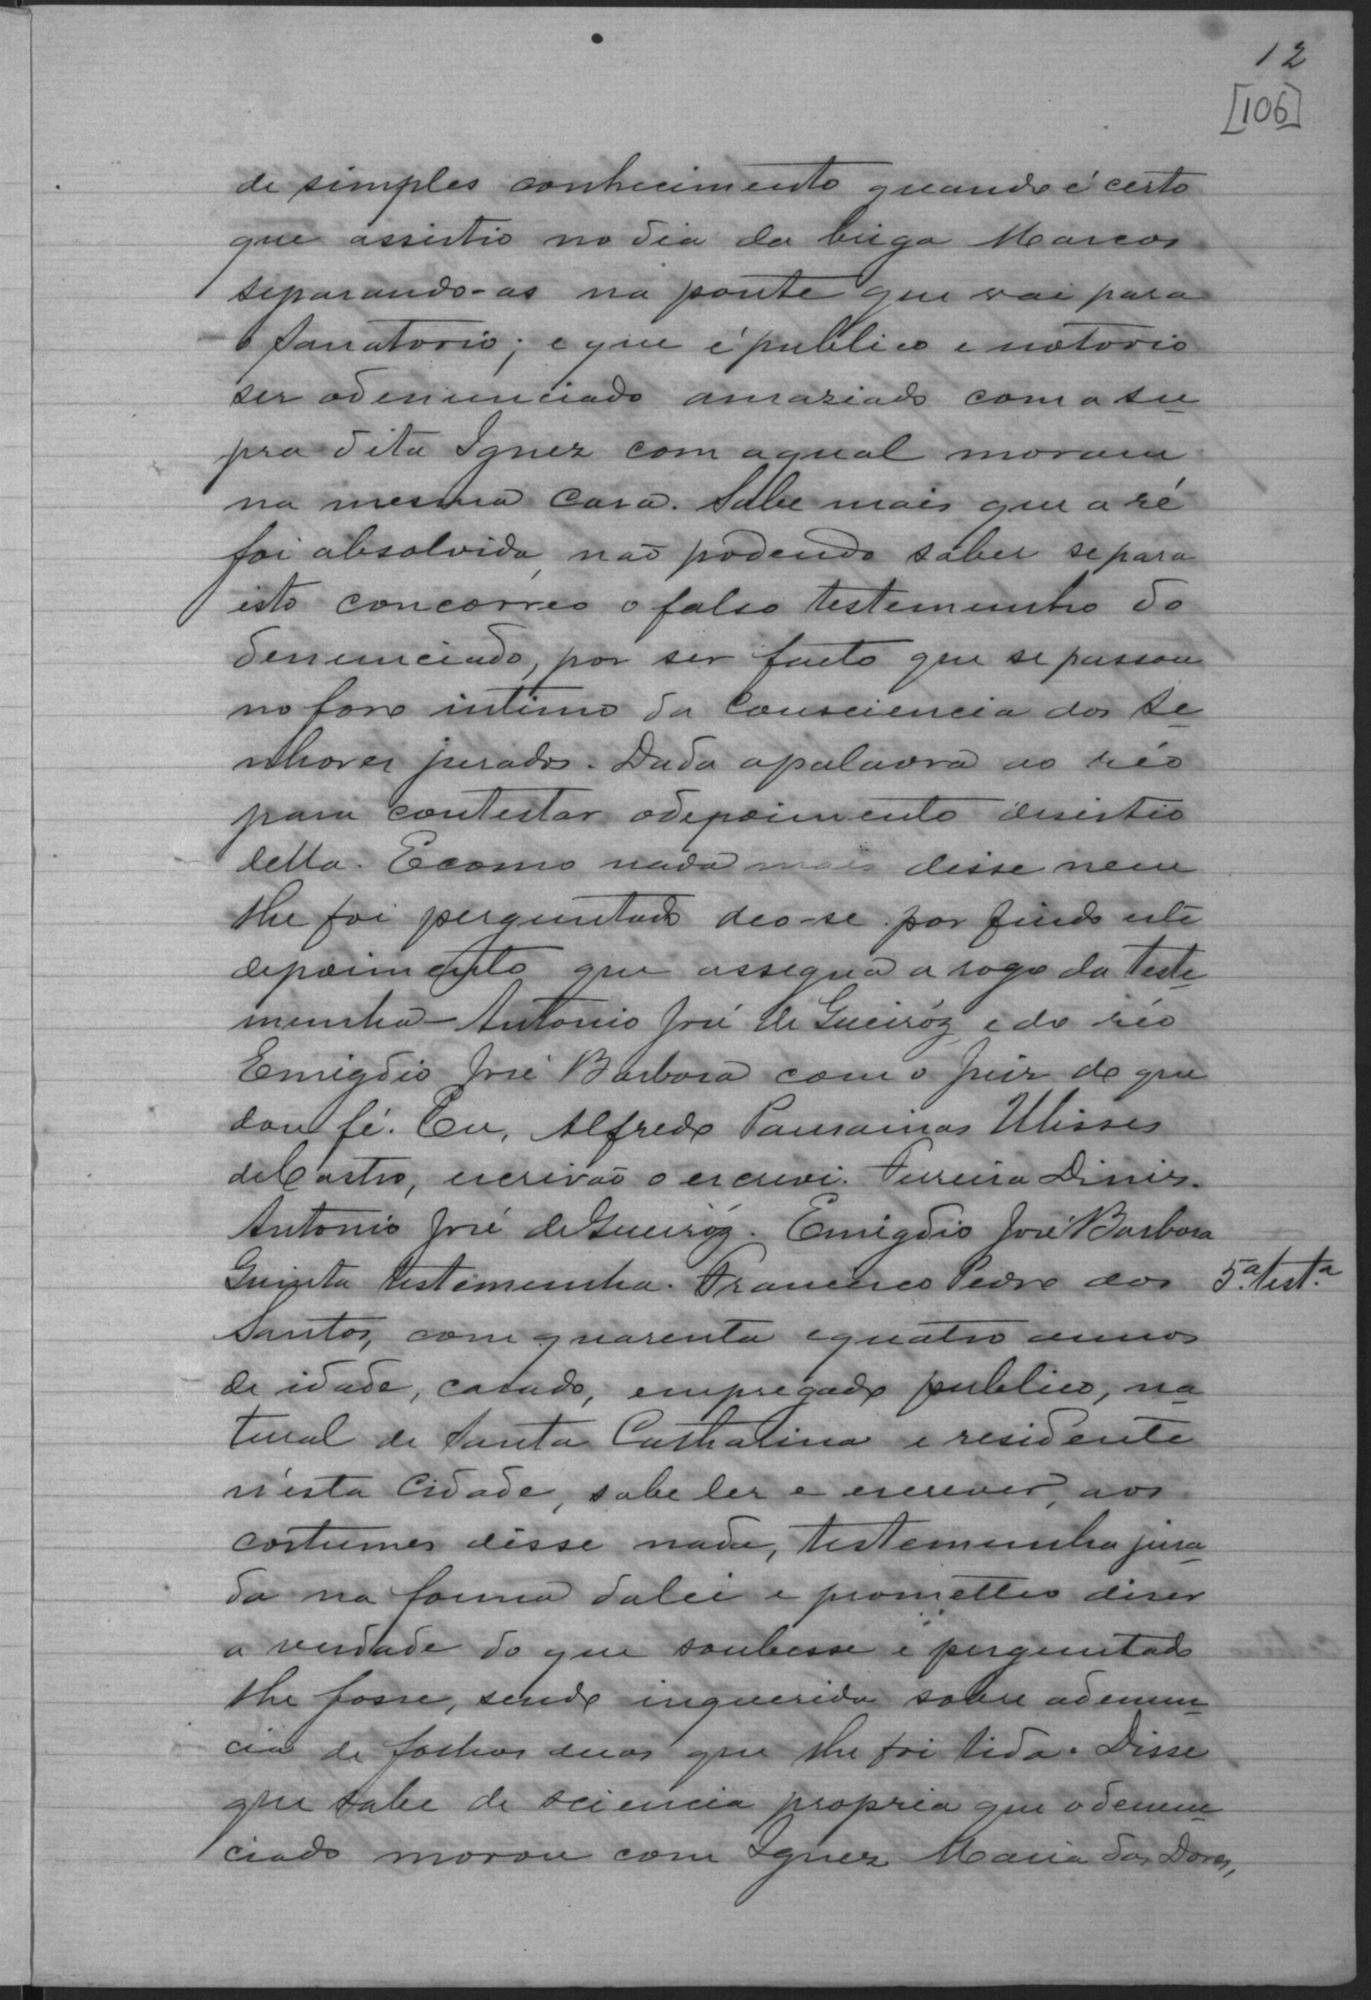 12
[106]
de simples conhecimento quando é certo
que assistio no dia da briga Marcos
separando-as na ponte que vai para
o Sanatorio; e que é publico e notorio
ser o denunciado amaziado com a su-
pra dita Ignez com a qual morava
na mesma casa. Sabe mais que a ré
foi absolvida, não podendo saber se para
isto concorreo o falso testemunho do
denunciado, por ser facto que se passou
no foro intimo da Consciencia dos Se-
nhores jurados. Dada a palavra ao réo
para contestar o depoimento desistio
della. E como nada mais disse nem
lhe foi perguntado deo-se por findo este
depoimento que assigna a rogo da teste-
munha Antonio José de Queiróz e do réo
Emigdio José Barbosa com o Juiz do que
dou fé. Eu, Alfredo Pausainas Ulisses
de Castro, escrivão o escrevi. Ferreira Diniz.
Antonio José de Queiróz. Emigdio José Barbosa
Quinta testemunha. Francisco Pedro dos
5.a test.a
Santos, com quarenta e quatro annos
de idade, casado, empregado publico, na-
tural de Santa Catharina e residente
n'esta Cidade, sabe ler e escrever, aos
costumes disse nada, testemunha jura-
da na forma da lei e prometteo diser
a verdade do que soubesse e perguntado
lhe fosse, sendo inquerida sobre a denun-
cia de folhas duas que lhe foi lida. Disse
que sabe de sciencia propria que o denun-
ciado morou com Ignez Maria das Dores,